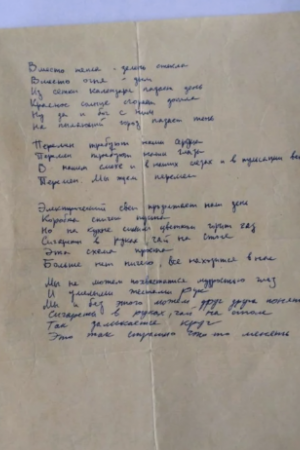 Вместо тепла - зелень стекла
Вместо огня - дым
Из сетки календаря вырван день
Красное солнце сгорает дотла
День
На пылающий город падает тень
Перемен требуют наши сердца
Перемен требуют наши глаза
В нашем смехе и в наших слезах и в пульсации вен
Перемен. Мы ждем перемен
Электрический свет продолжает наш день
Коробка спичек пуста
Но на кухне синим цветком горит газ
Сигареты в руках чай на столе
Эта схема проста
Больше нет ничего все находится в нас
Мы не можем похвастаться мудростью глаз
И умелыми жестами рук
Мы без этого можем друг друга понять
Сигареты в руках, чай на столе
Так замыкается круг